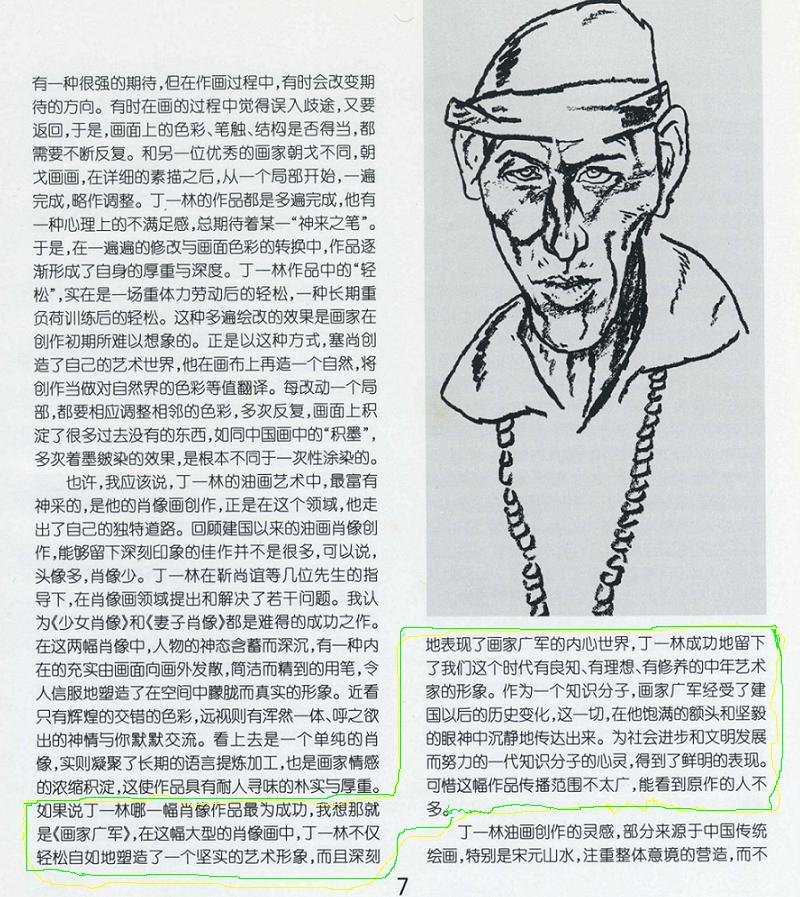 有一种很强的期待,但在作画过程中,有时会改变期
待的方向。有时在画的过程中觉得误入歧途,又要
返回,于是,画面上的色彩、笔触、结构是否得当,都
需要不断反复。和另一位优秀的画家朝戈不同,朝
戈画画,在详细的素描之后,从一个局部开始,一遍
完成,略作调整。丁一林的作品都是多遍完成,他有
一种心理上的不满足感,总期待着某一“神来之笔”。
于是,在一遍遍的修改与画面色彩的转换中,作品逐
渐形成了自身的厚重与深度。丁一林作品中的“轻
松”,实在是一场重体力劳动后的轻松,一种长期重
负荷训练后的轻松。这种多遍绘改的效果是画家在
创作初期所难以想象的。正是以这种方式,塞尚创
造了自己的艺术世界,他在画布上再造一个自然,将
创作当做对自然界的色彩等值翻译。每改动一个局
部,都要相应调整相邻的色彩,多次反复,画面上积
淀了很多过去没有的东西,如同中国画中的“积墨”,
多次着墨皴染的效果,是根本不同于一次性涂染的。
也许,我应该说,丁一林的油画艺术中,最富有
神采的,是他的肖像画创作,正是在这个领域,他走
出了自己的独特道路。回顾建国以来的油画肖像创
作,能够留下深刻印象的佳作并不是很多,可以说,
头像多,肖像少。丁一林在靳尚谊等几位先生的指
导下,在肖像画领域提出和解决了若干问题。我认
为《少女肖像》和《妻子肖像》都是难得的成功之作。
在这两幅肖像中,人物的神态含蓄而深沉,有一种内
在的充实由画面向画外发散,简洁而精到的用笔,令
人信服地塑造了在空间中朦胧而真实的形象。近看
只有辉煌的交错的色彩,远视则有浑然一体、呼之欲
出的神情与你默默交流。看上去是一个单纯的肖
像,实则凝聚了长期的语言提炼加工,也是画家情感
的浓缩积淀,这使作品具有耐人寻味的朴实与厚重。
如果说丁一林哪一幅肖像作品最为成功,我想那就
是《画家广军》,在这幅大型的肖像画中,丁一林不仅
轻松自如地塑造了一个坚实的艺术形象,而且深刻
地表现了画家广军的内心世界,丁一林成功地留下
了我们这个时代有良知、有理想、有修养的中年艺术
家的形象。作为一个知识分子,画家广军经受了建
国以后的历史变化,这一切,在他饱满的额头和坚毅
的眼神中沉静地传达出来。为社会进步和文明发展
而努力的一代知识分子的心灵,得到了鲜明的表现。
可惜这幅作品传播范围不太广,能看到原作的人不
多。
丁一林油画创作的灵感,部分来源于中国传统
绘画,特别是宋元山水,注重整体意境的营造,而不
7